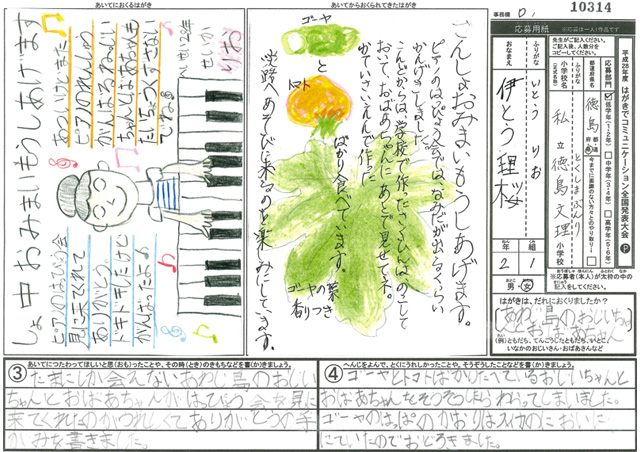 あいてにおくるはがき
しょ中おみまいもうしあげます
あつい日がつづきました
ピアノのれんしゅう
がんばるねおじい
ちゃんとおばあちゃんも
たいちょうにきをつけ
てね
りお
ピアノのはっぴょう会
見に来てくれて
ありがとう。
ドキドキしたけど
がんばったよ
あいてからおくられてきたはがき
ゴーヤ
と
トマト
ざんしょおみまいもうしあげます。
ピアノのはっぴょう会では、なみだが出るくらい
かんげきしました。
おいて、おばあちゃんにあとで見せてネ。
かていさいえんで作った
ばかり食べています。
淡路へあそびに来るのを楽しみにしています。
ゴーヤの葉
香りつき
10314
事務欄
応募用紙
※応募は一人1作品です
先生がご記入ください。
ご記入後、人数分を
コピーしてください。
平成28年度 はがきでコミュニケーション全国発表大会
応募部門
低学年(1・2年)
中学年(3・4年)
高学年(5・6年)
都道府県名
徳島
小学校名
(正式名称)
とくしまぶんり
私立徳島文理
小学校
ふりがな
いとう りお
おなまえ
伊とう 理桜
年
2
組
1
男・女
※応募者(本人)が太枠の中の
記入をしてください。
はがきは、だれにおくりましたか?
あわじ島のおじいちゃん
とおばあちゃん
(例)ともだち、てんこうしたともだち、いとこ、
いなかのおじいさん・おばあさんなど
③
あいてにつたわってほしいと思(おも)ったことや、その時(とき)のきもちなどを書(か)きましょう。
たまにしか会えないあわじ島のおじい
ちゃんとおばあちゃんがはっぴょう会を見に
来てくれたのがうれしくてありがとうの手
がみを書きました。
④
へんじをよんで、とくにうれしかったことや、そうぞうしたことなどを書(か)きましょう。
ゴーヤとトマトばかりたべているおじいちゃんと
おばあちゃんをそうぞうしたらわらってしまいました。
ゴーヤのはっぱのかおりはスイカのにおいに
にていたのでおどろきました。